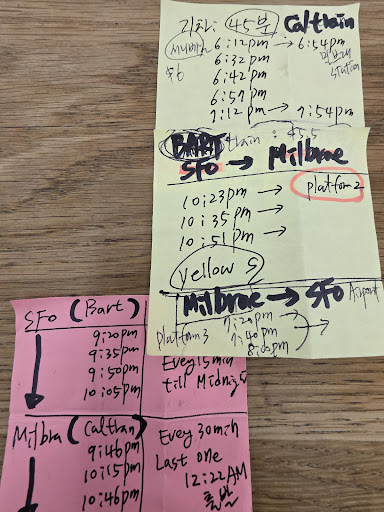 기차: 45분 Caltrain
써니베일 6:12pm → 6:54pm
6:32pm 밀브레
6:42pm station
6:57pm
7:12pm → 7:54pm
BART train : 45.5
SFO → Milbrae
10:23pm → platform 2
10:35pm →
10:51pm →
yellow S
Milbrae → SFO Airport
platform 3 7:20pm
7:40pm →
8:00pm
SFO (Bart)
9:20pm
9:35pm Evey 15 min
9:50pm till Midnig
10:05pm
Milbra (Caltran) Evey 30 min
9:46pm Last one
10:15pm 12:22AM
10:46pm 출발